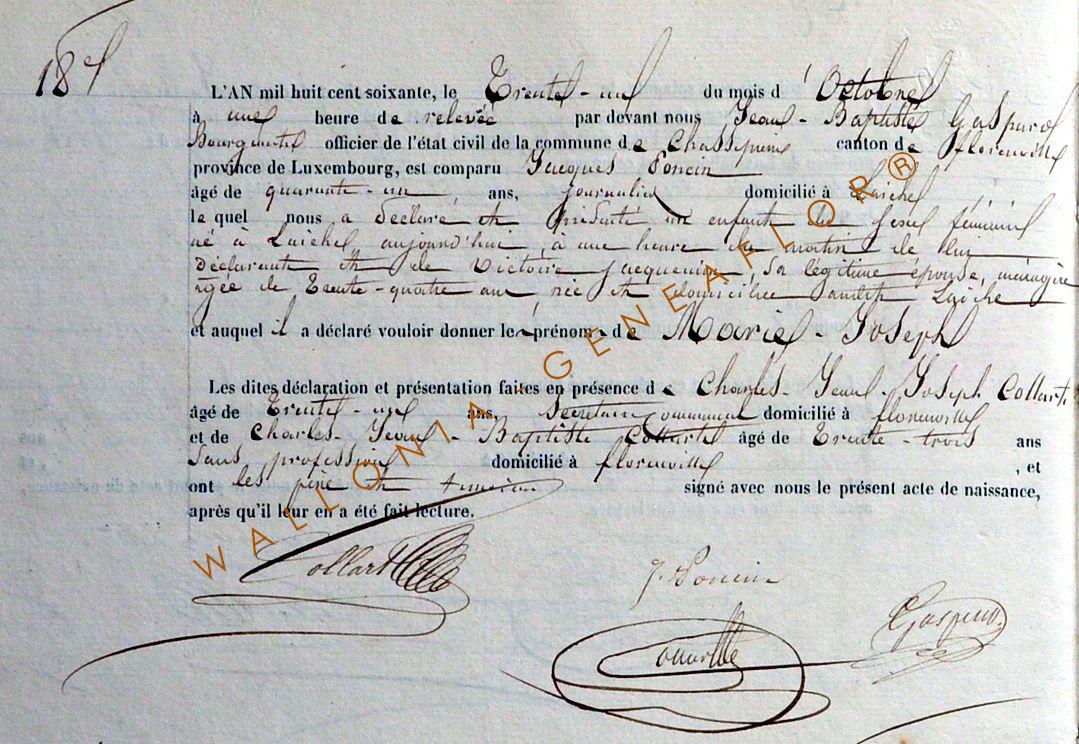 18
L'AN mil huit cent soixante, le Trente-un du mois d'Octobre
à une heure de relevée par devant nous Jean-Baptiste Gaspard
officier de l'état civil de la commune de Chassepierre canton de florenville
province de Luxembourg, est comparu Jacques Poncin
âgé de quarante-un ans, journalier domicilié à Laiche
le quel nous a déclaré et présenté un enfant du sexe féminin
né à Laiche, aujourd'hui, à une heure du matin de lui
déclarant et de Victoire jacquemin, sa légitime épouse, ménagère
âgée de trente-quatre ans née et domiciliée audit Laiche
et auquel il a déclaré vouloir donner les prénoms de Marie-Joseph
Les dites déclaration et présentation faites en présence de Charles-Jean-Joseph Collart
âgé de Trente-un ans, secrétaire communal domicilié à florenville
et de Charles-Jean-Baptiste âgé de Trente-trois ans
sans profession domicilié à florenville , et
ont les père et témoins signé avec nous le présent acte de naissance,
après qu'il leur en a été fait lecture.
Collart
J. Poncin
Gaspard
WALLONIA-GENEAFLOR®